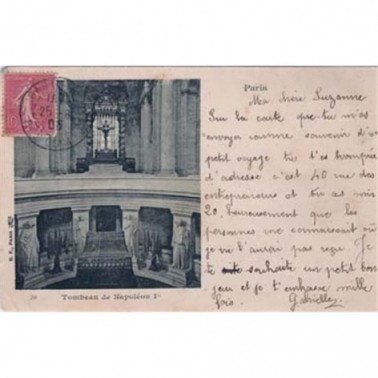 Paris
Ma chère Suzanne
Sur la carte que tu m'as
envoyer comme souvenir d'un
petit voyage tu t'es trompée
d'adresse c'est 40 rue des
entrepreneurs et tu as mis
20, heureusement que les
personnes me connaissent car
je ne l'aurai pas reçu. Je
te souhaite un petit bon
jour et je t'embrasse mille
fois. Gabrielle
Tombeau de Napoléon Ier